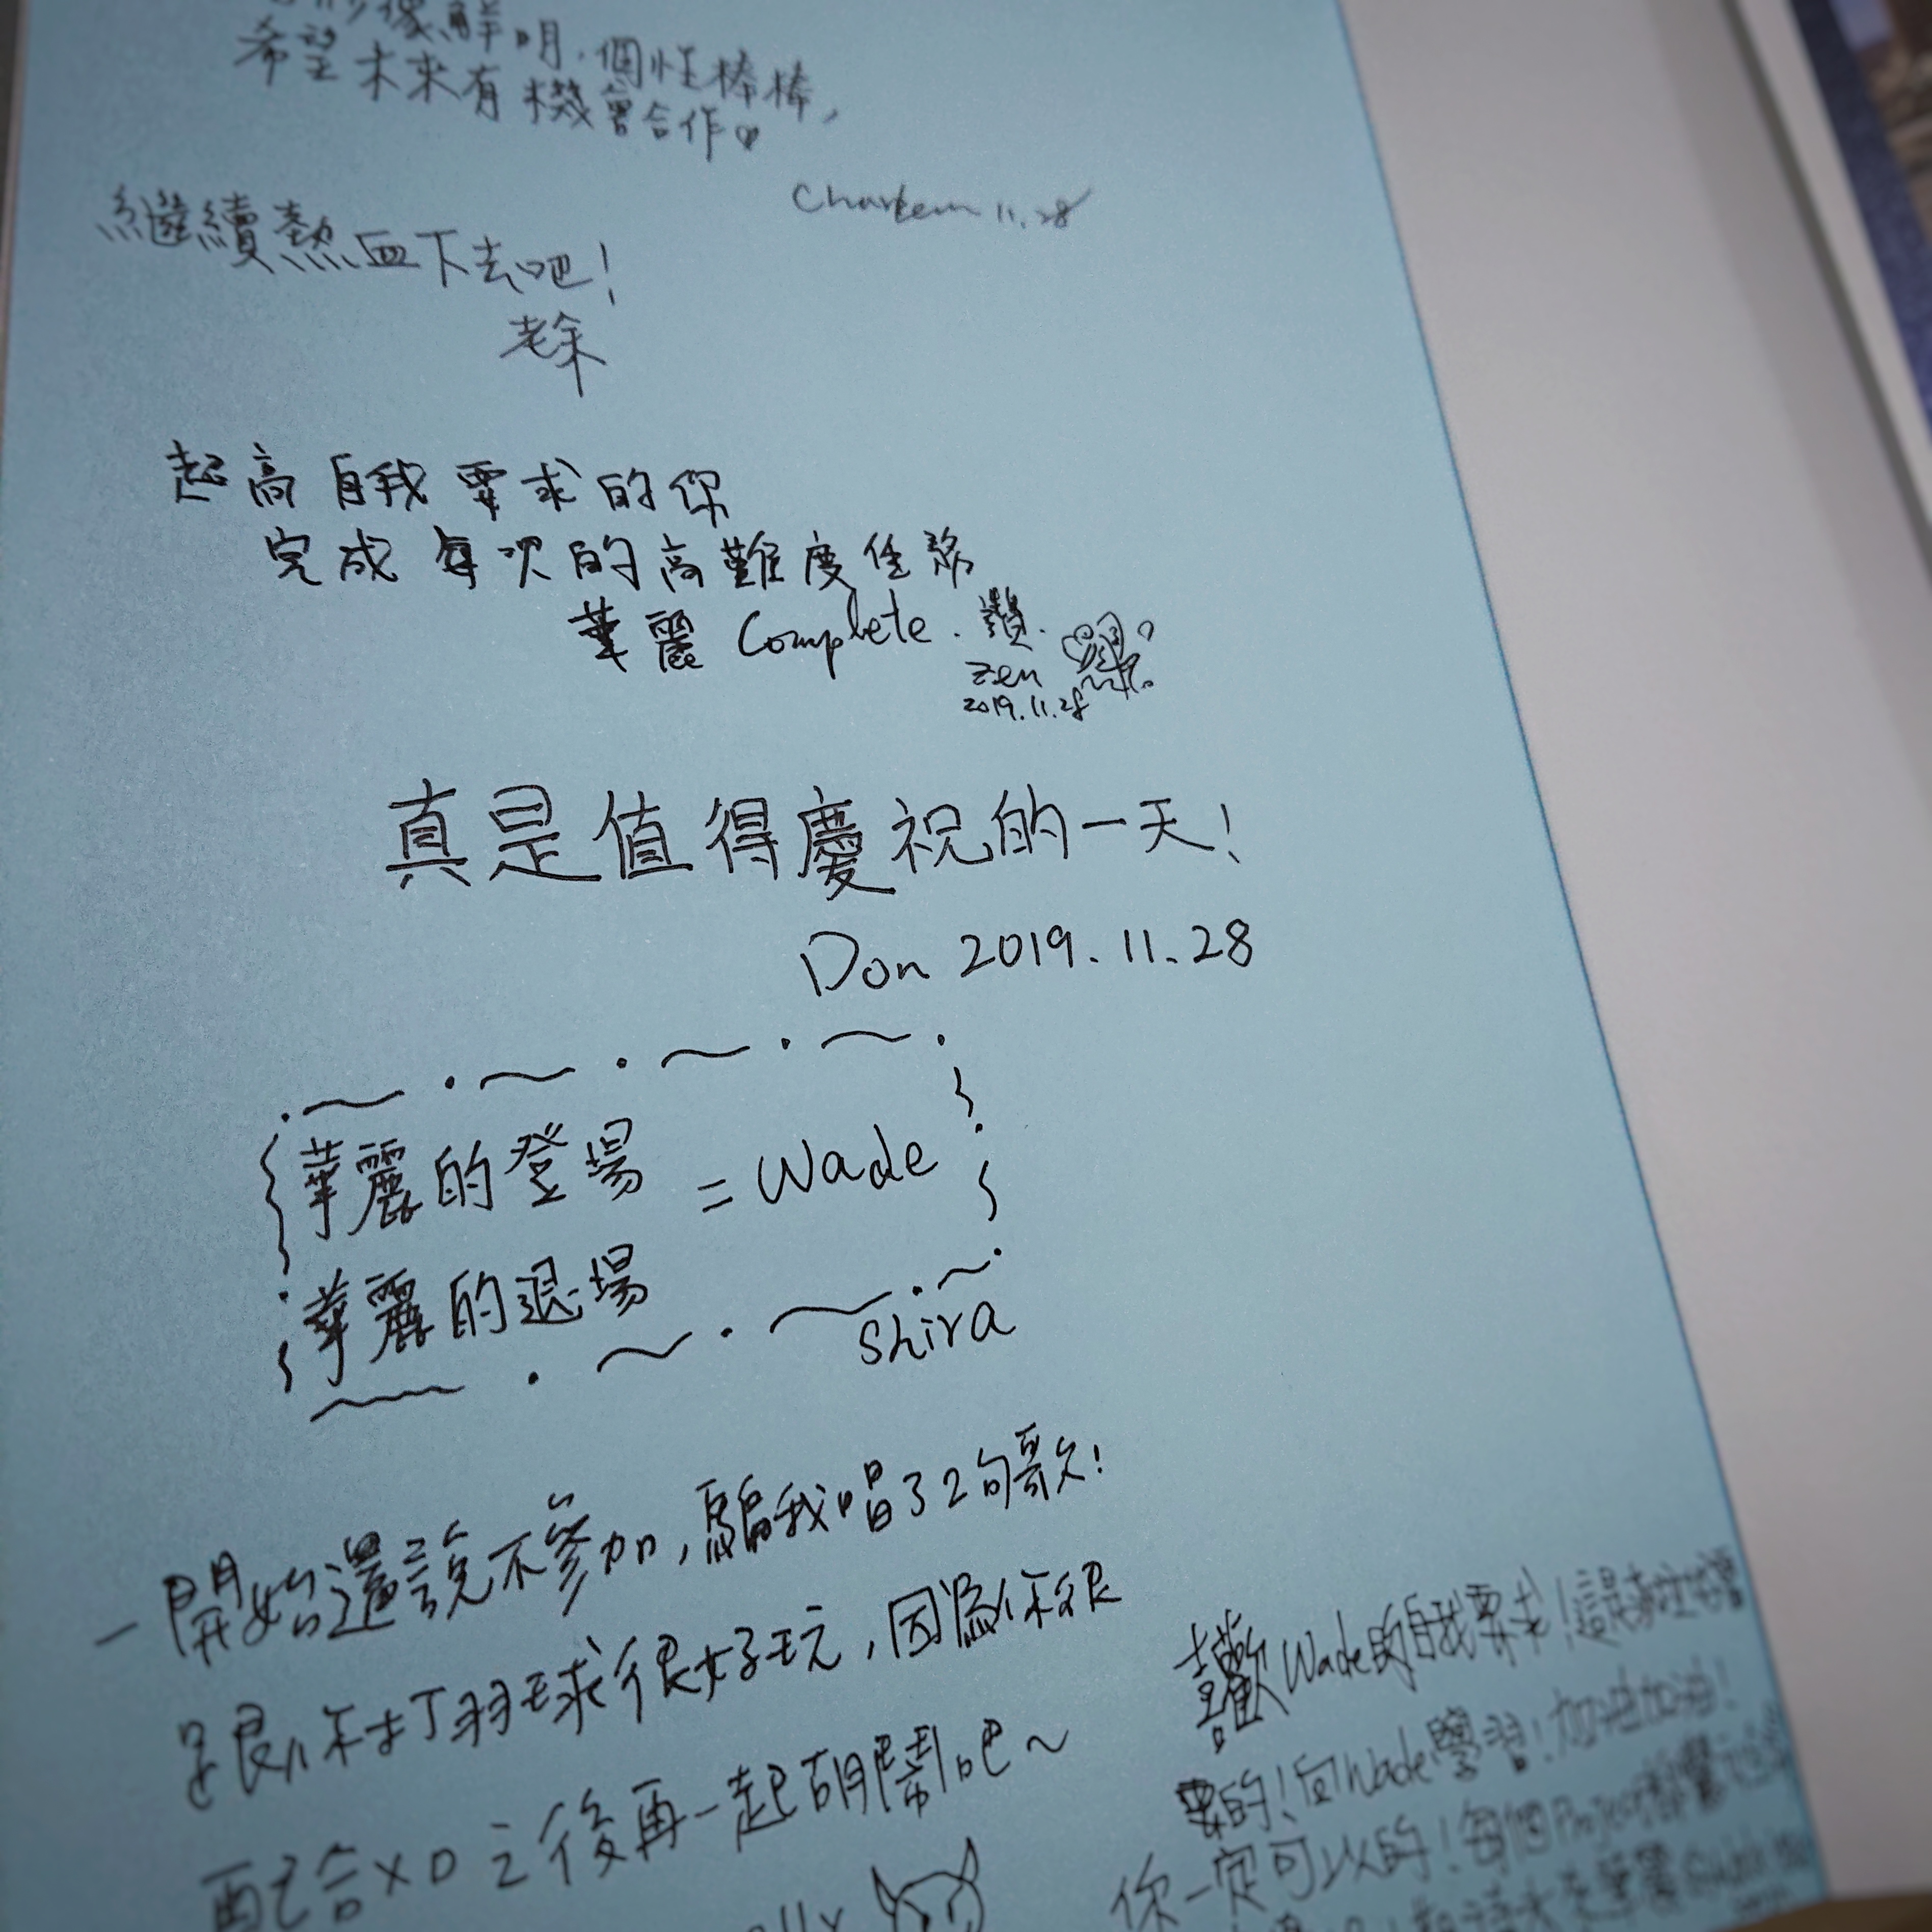 像鮮明，個性棒棒，
希望未來有機會合作。
11.28
繼續熱血下去吧！
老余
超高自我要求的你
完成每次的高難度任務
華麗 Complete. 讚.
Zen
2019.11.28
真是值得慶祝的一天！
Don 2019.11.28
華麗的登場
= Wade
華麗的退場
Shira
一開始還說不參加，騙我唱了2句歌！
跟你打羽球很好玩，因為你很
配合XD 之後再一起胡鬧吧～
喜歡Wade的自我要求！這是
要的！向Wade學習！加油加油！
你一定可以的！每個Project都